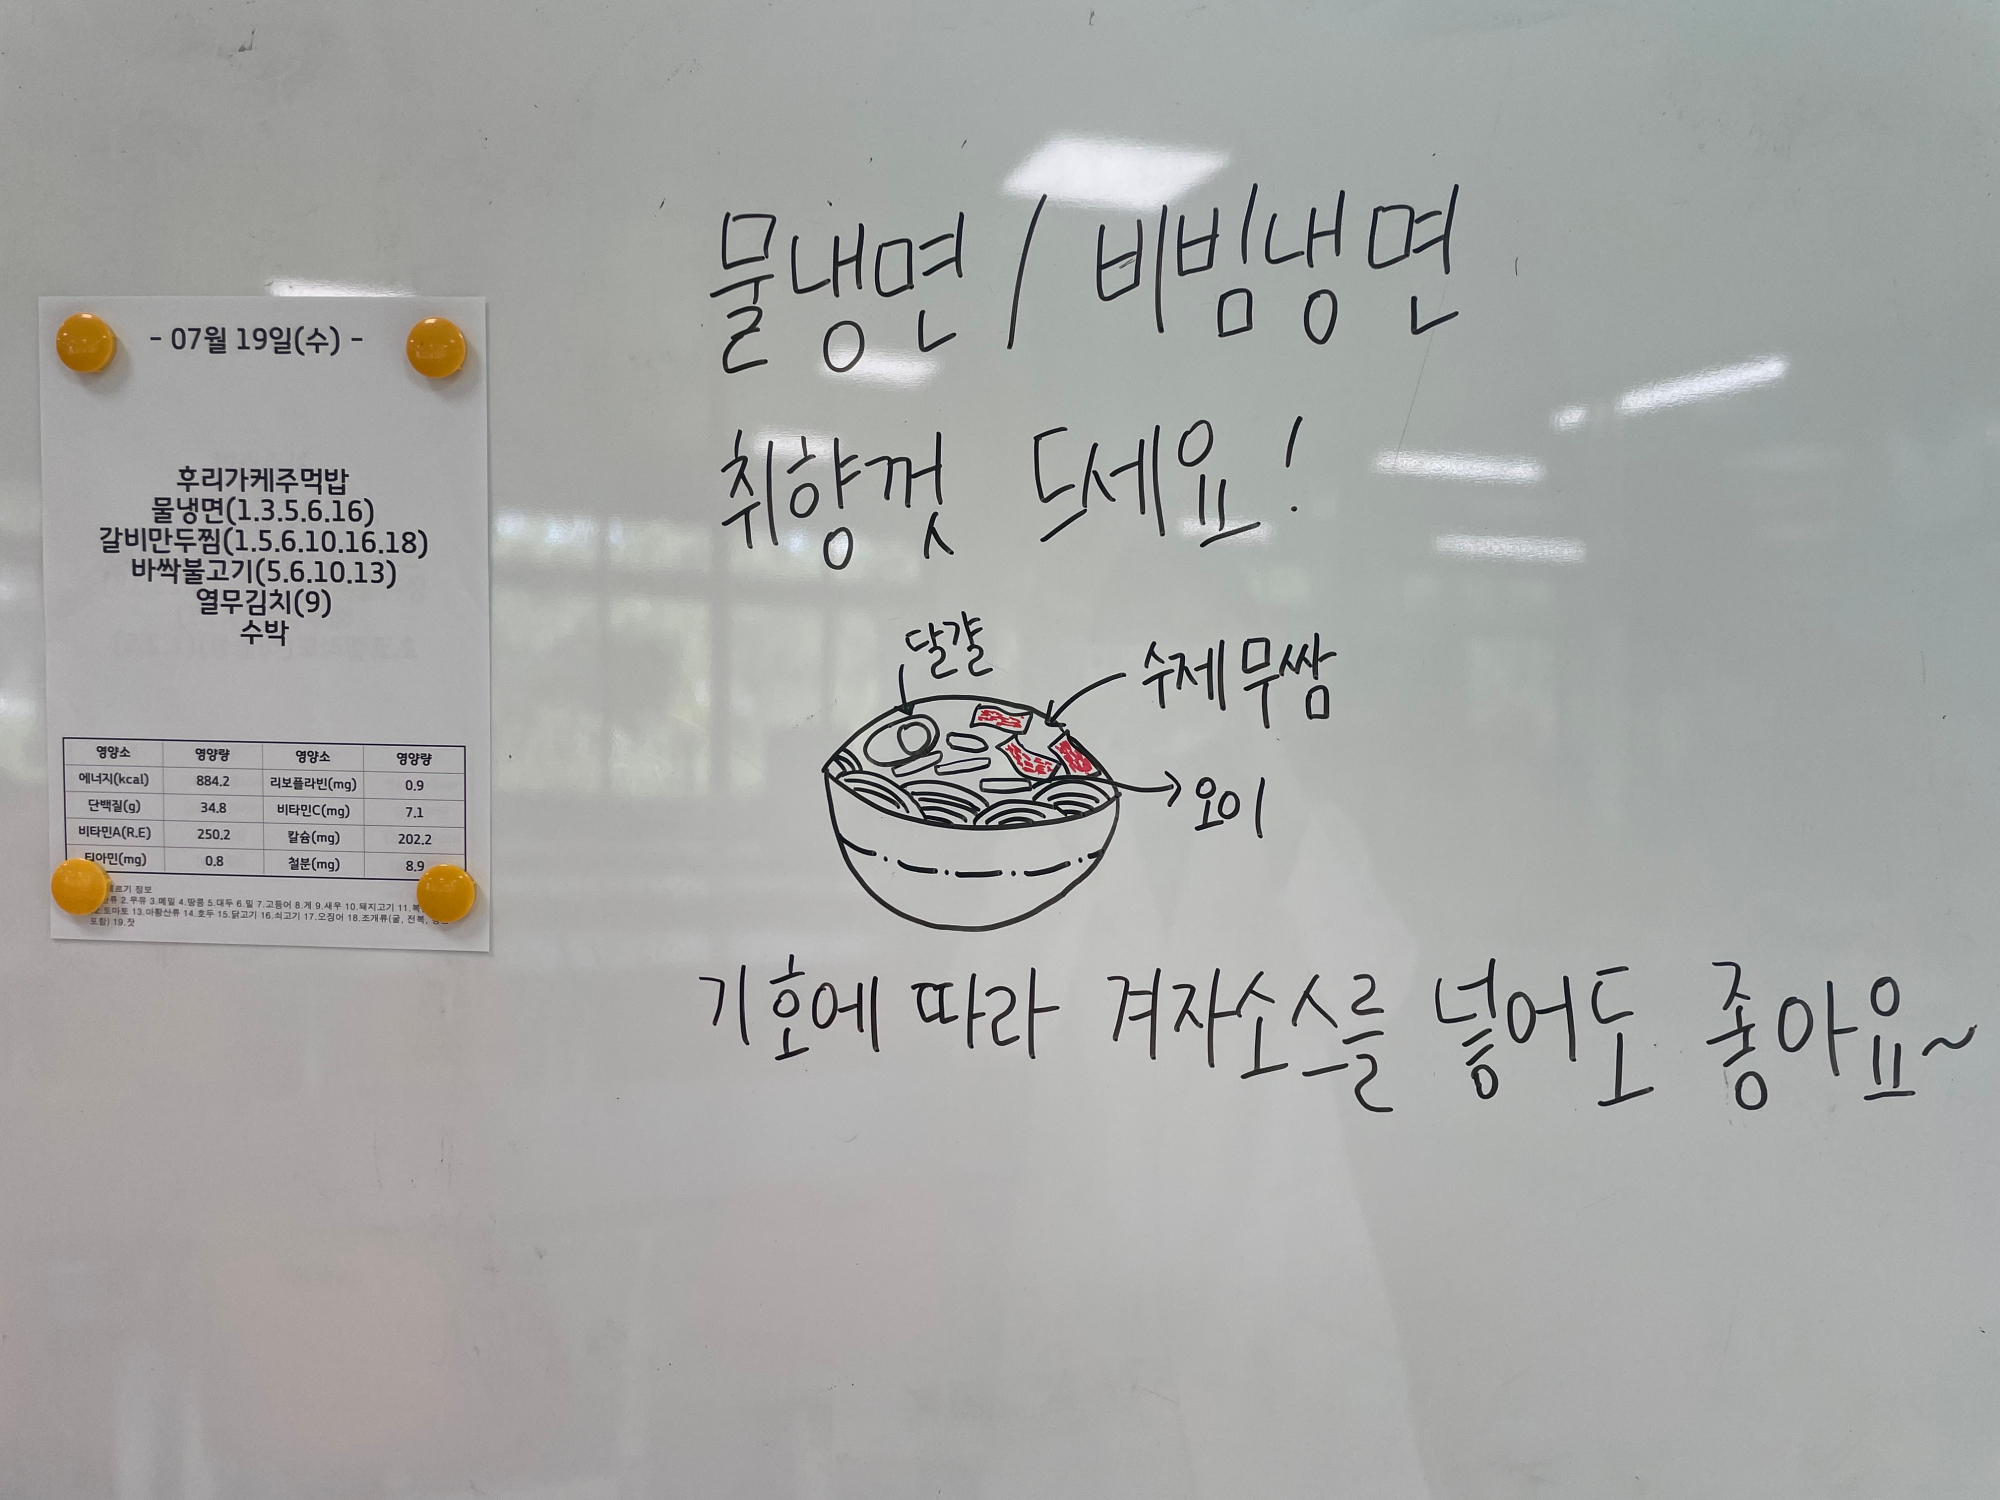 - 07월 19일(수) -
후리가케주먹밥
물냉면(1.3.5.6.16)
갈비만두찜(1.5.6.10.16.18)
바싹불고기(5.6.10.13)
열무김치(9)
수박
영양소 영양량 영양소 영양량
에너지(kcal) 884.2 리보플라빈(mg) 0.9
단백질(g) 34.8 비타민C(mg) 7.1
비타민A(R.E) 250.2 칼슘(mg) 202.2
티아민(mg) 0.8 철분(mg) 8.9
정보
2.우유 3.메밀 4.땅콩 5.대두 6.밀 7.고등어 8.게 9.새우 10.돼지고기
토마토 13.아황산류 14.호두 15.닭고기 16.쇠고기 17.오징어 18.조개류(굴, 전복,
포함) 19.잣
물냉면 / 비빔냉면
취향껏 드세요!
달걀
수제 무쌈
오이
기호에 따라 겨자소스를 넣어도 좋아요~